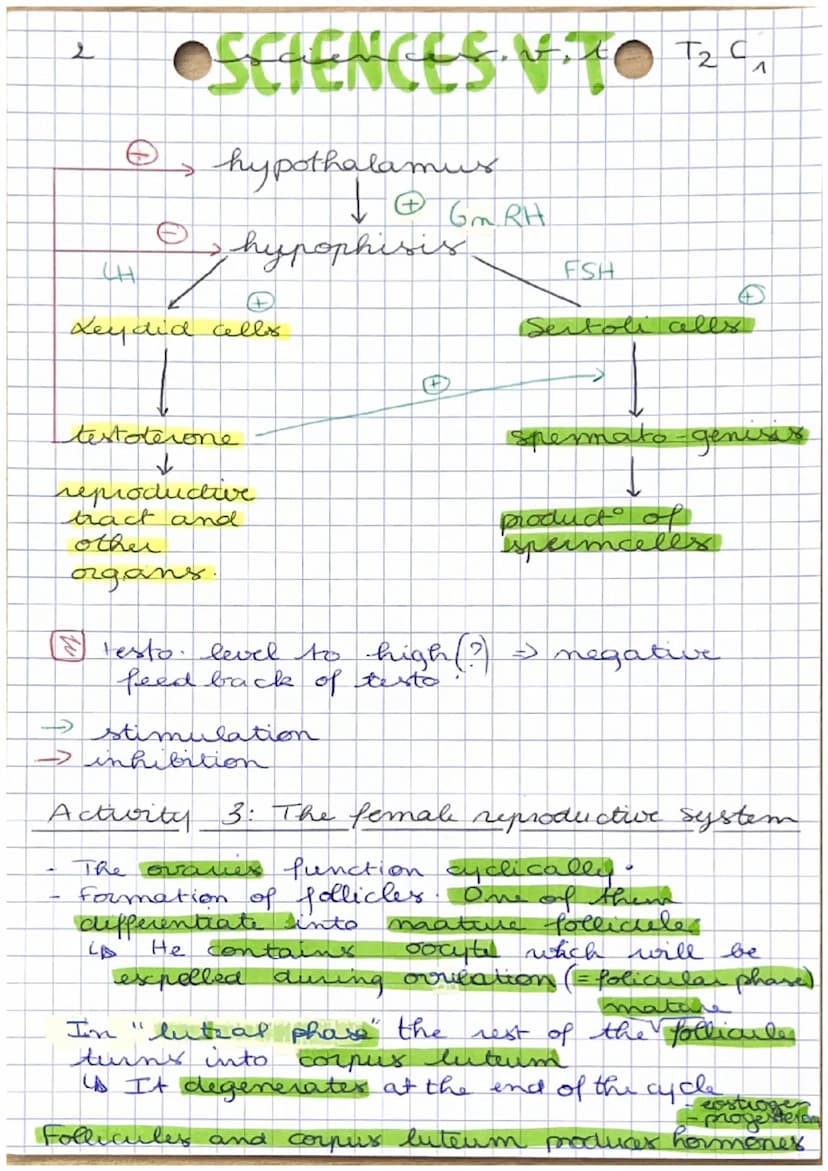 2
SCIENCES.V.T
T2 C1
⊖ hypothalamus
⊕ GnRH
⊖ hypophisis
LH
FSH
⊕
⊕
Leydid cells
Sertoli cells
⊕
testoterone
spermato-genisis
reproductive
tract and
other
organs.
product° of
spermcells
testo. level to high(?) => negative
feed back of testo.
→ stimulation
→ inhibition
Activity 3: The female reproductive system
- The ovaries function cyclically.
- Formation of follicles. One of them
differentiate into maature follicules
↳ He contains oocyte which will be
expelled during ovulation (= folicular phase)
mature
In "luteal phase" the rest of the √ follicule
turns into corpus luteum
↳ It degenerates at the end of the cycle
- eostrogen
- progesteron
Follicules and corpus luteum produces hormones